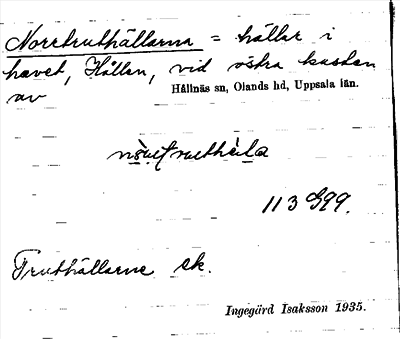 Norrtruthällarna = hällar i
havet, Hållen, vid östra kusten
av Hållnäs sn, Olands hd, Uppsala län.
113 G99.
Truthällarne sk.
Ingegärd Isaksson 1935.